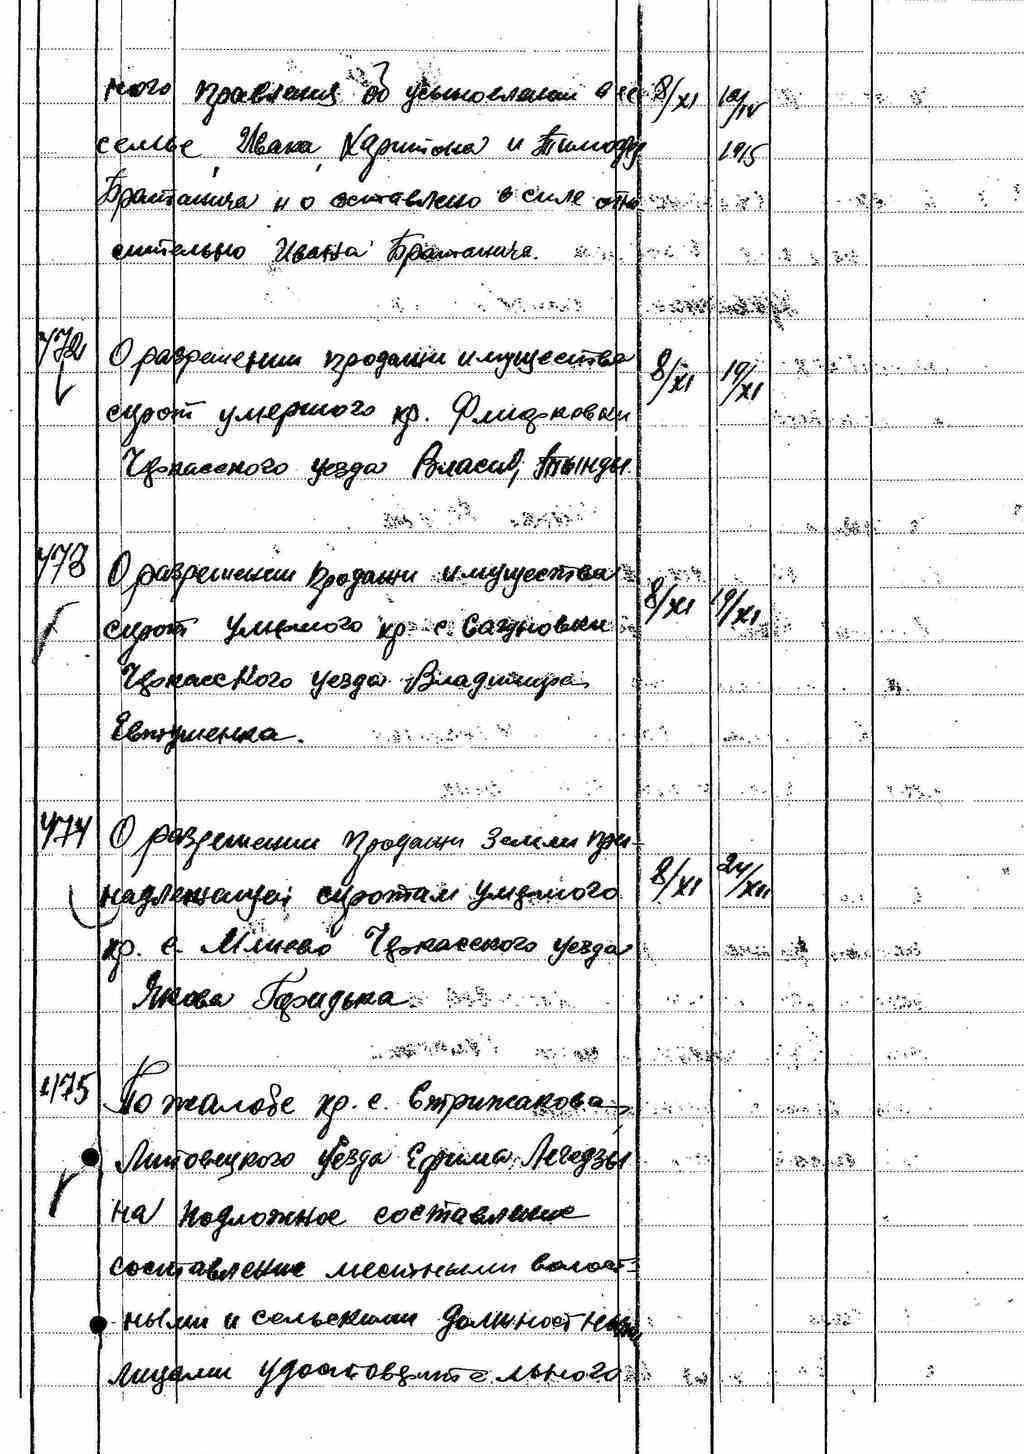 ного правления об усыновлении в ее 8/XI 12/IV
семье, Ивана, Харитона и Тимофея 1915
Братанича и о оставлено в силе отно
сительно Ивана Братанича.
472 О разрешении продажи имущества 8/XI 19/XI
сирот умершого кр.
Черкасского уезда Власия Тынды.
473 О разрешении продажи имущества 8/XI 19/XI
сирот умершого кр. с. Сагуновки
Черкасского уезда Владимира
Евтушенка.
474 О разрешении продажи земли при- 8/XI 24/XII
надлежащей сиротам умершого
кр. с. Млиево Черкасского уезда
Якова Гаридька
475 По жалобе кр. с. Стрижакова
Липовецкого уезда Ефима Легедзы
на подложное составление
составление местными волост-
ными и сельскими должностными
лицами удостоверительного